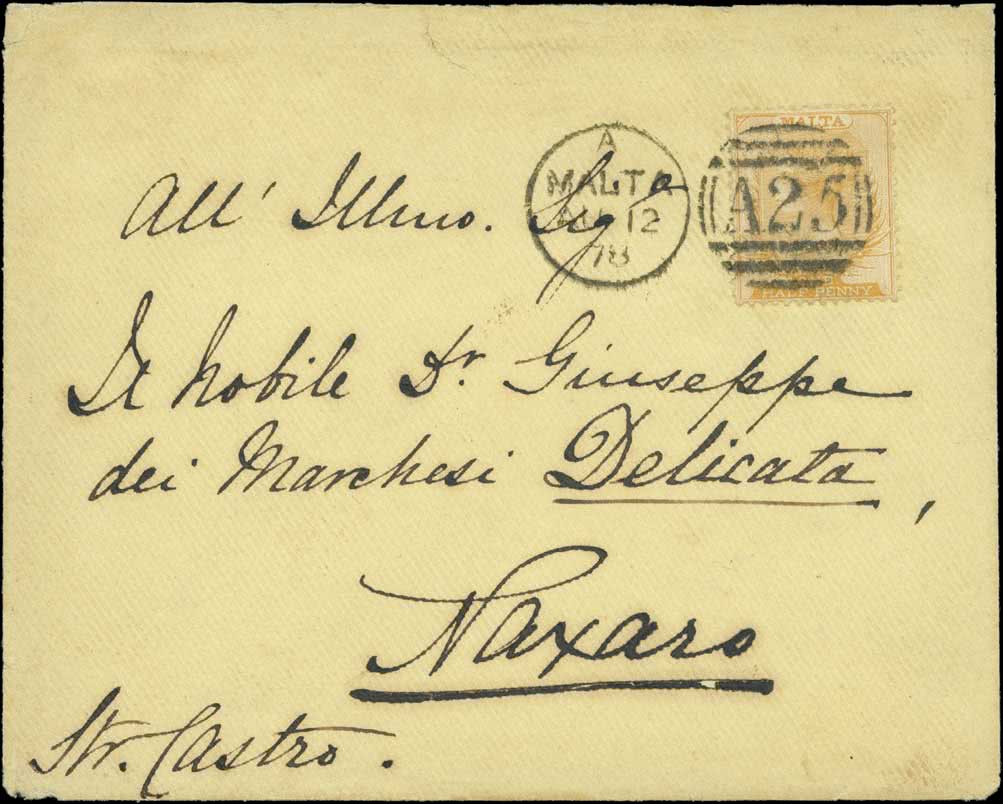 MALTA
A25
HALF PENNY
A
MALTA
AU 12
78
All' Illmo. Sigre
Il Nobile Dr. Giuseppe
dei Marchesi Delicata,
Naxaro
Str. Castro.